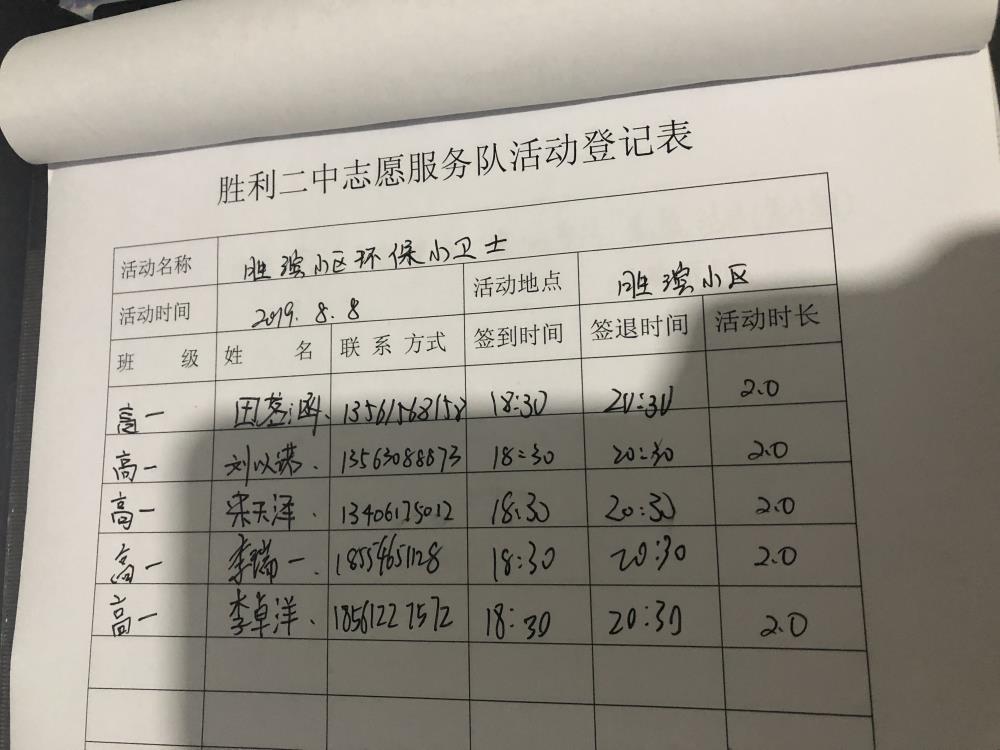 胜利二中志愿服务队活动登记表
活动名称 胜滨小区环保小卫士
活动时间 2019.8.8 活动地点 胜滨小区
班 级 姓 名 联系方式 签到时间 签退时间 活动时长
高一 田 13561568158 18:30 20:30 2.0
高一 刘以诺. 13563088873 18:30 20:30 2.0
高一 宋天泽. 13406175012 18:30 20:30 2.0
高一 李瑞一. 18554651128 18:30 20:30 2.0
高一 李卓洋. 18561227572 18:30 20:30 2.0